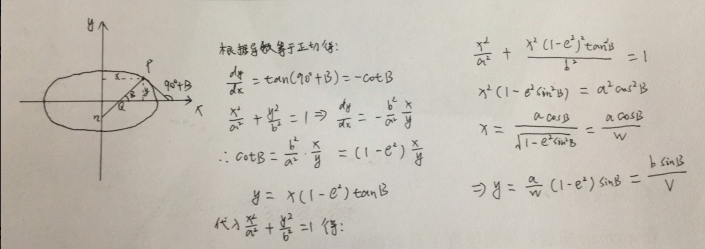 y
x
P
90°+B
x
y
B
Q
n
根据导数等于正切得:
dy/dx = tan(90°+B) = -cotB
x²/a² + y²/b² = 1 ⇒ dy/dx = -b²/a² x/y
∴ cotB = b²/a² · x/y = (1-e²) x/y
y = x(1-e²)tanB
代入 x²/a² + y²/b² = 1 得:
x²/a² + x²(1-e²)²tan²B/b² = 1
x²(1-e²sin²B) = a²cos²B
x = a cosB/√(1-e²sin²B) = a cosB/W
⇒ y = a/W (1-e²) sinB = b sinB/V